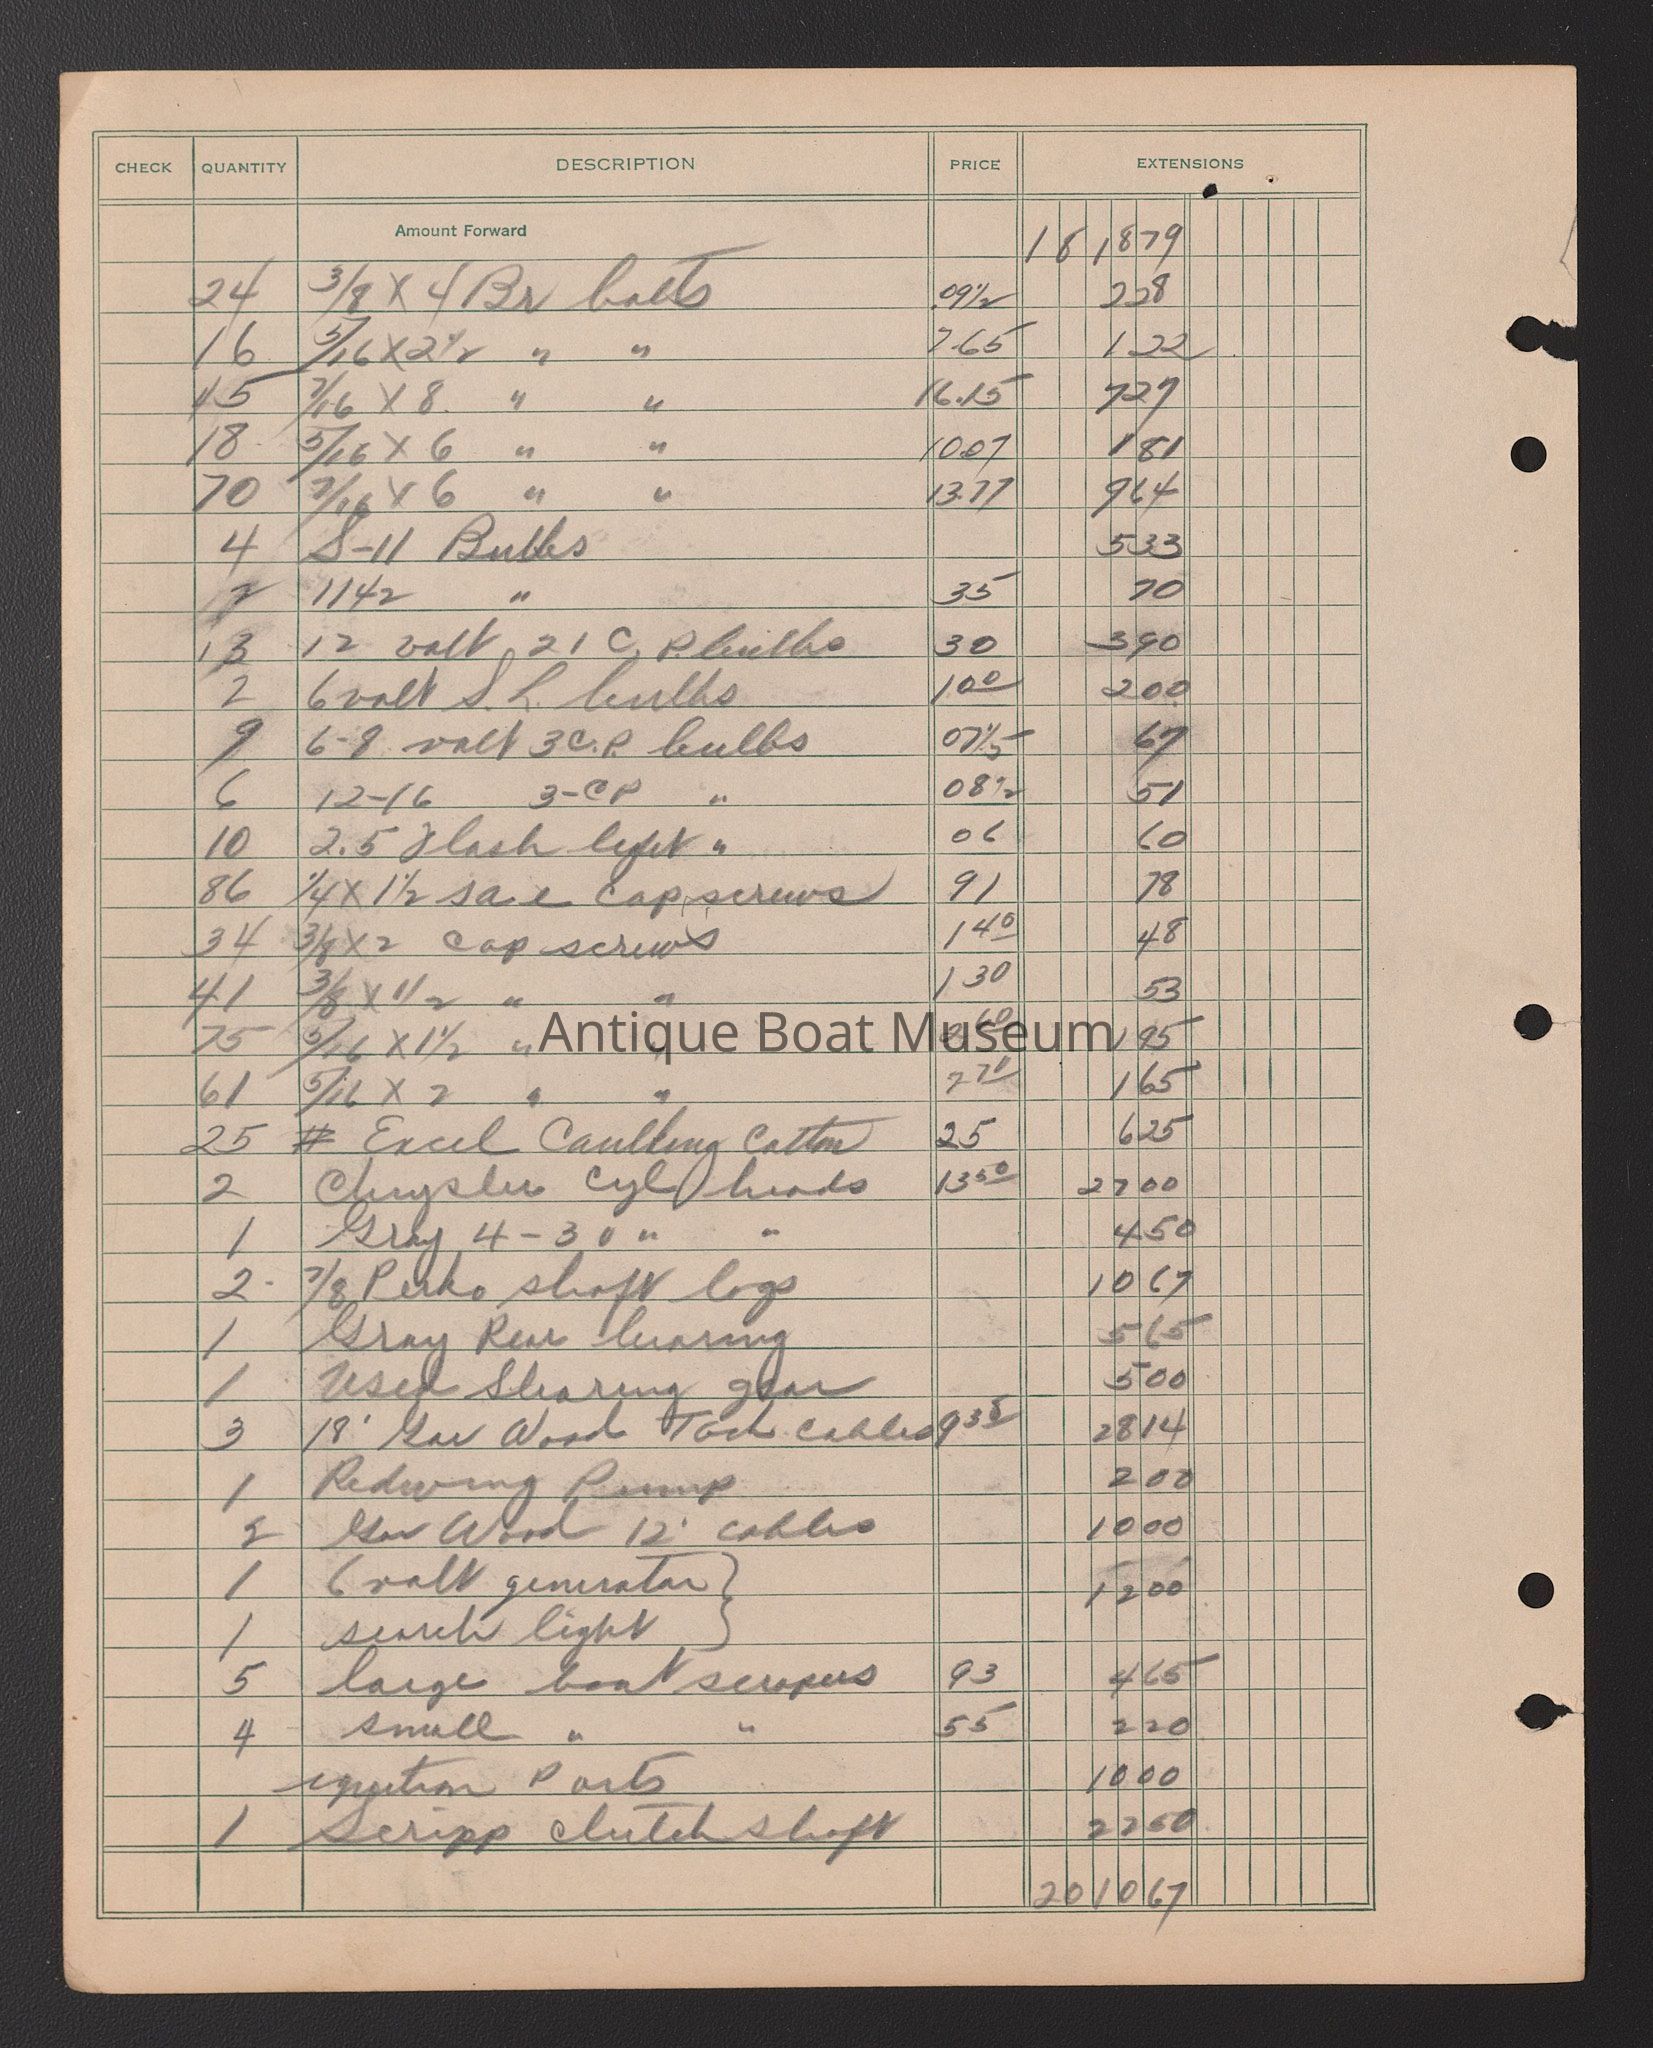 CHECK QUANTITY DESCRIPTION PRICE EXTENSIONS
Amount Forward 161879
24 3/8 X 4 Br bolts .09 1/2 228
16 5/16 X 2 1/2 " " 7.65 122
45 7/16 X 8 " " 16.15 727
18 5/16 X 6 " " 10.07 181
70 7/16 X 6 " " 13.77 964
4 S-11 Bulbs 533
2 1142 " 35 70
13 12 volt 21 C.P. bulbs 30 390
2 6 volt S.L. bulbs 1.00 200
9 6-8 volt 3 C.P. bulbs 07 1/2 67
6 12-16 3-CP " 08 1/2 51
10 2.5 Flash light " 06 60
86 1/4 X 1 1/2 sae cap screws 91 78
34 3/8 X 2 cap screws 1 40 48
41 3/8 X 1 1/2 " " 1 30 53
75 5/16 X 1 1/2 " " 60 195
Antique Boat Museum
61 5/16 X 2 " " 2 71 165
25 # Excel Caulking Cotton 25 625
2 Chrysler Cyl heads 13 50 2700
1 Gray 4-30 " " 450
2 7/8 Perko shaft logs 1067
1 Gray Rear bearing 565
1 Used Stearing gear 500
3 18' Gar Wood Tach cables 9 38 2814
1 Redwing Pump 200
2 Gar Wood 12' cables 1000
1 6 volt generator } 1200
1 search light }
5 large boat scrapers 93 465
4 small " " 55 220
ignition Parts 1000
1 Scripp clutch shaft 2250
201067